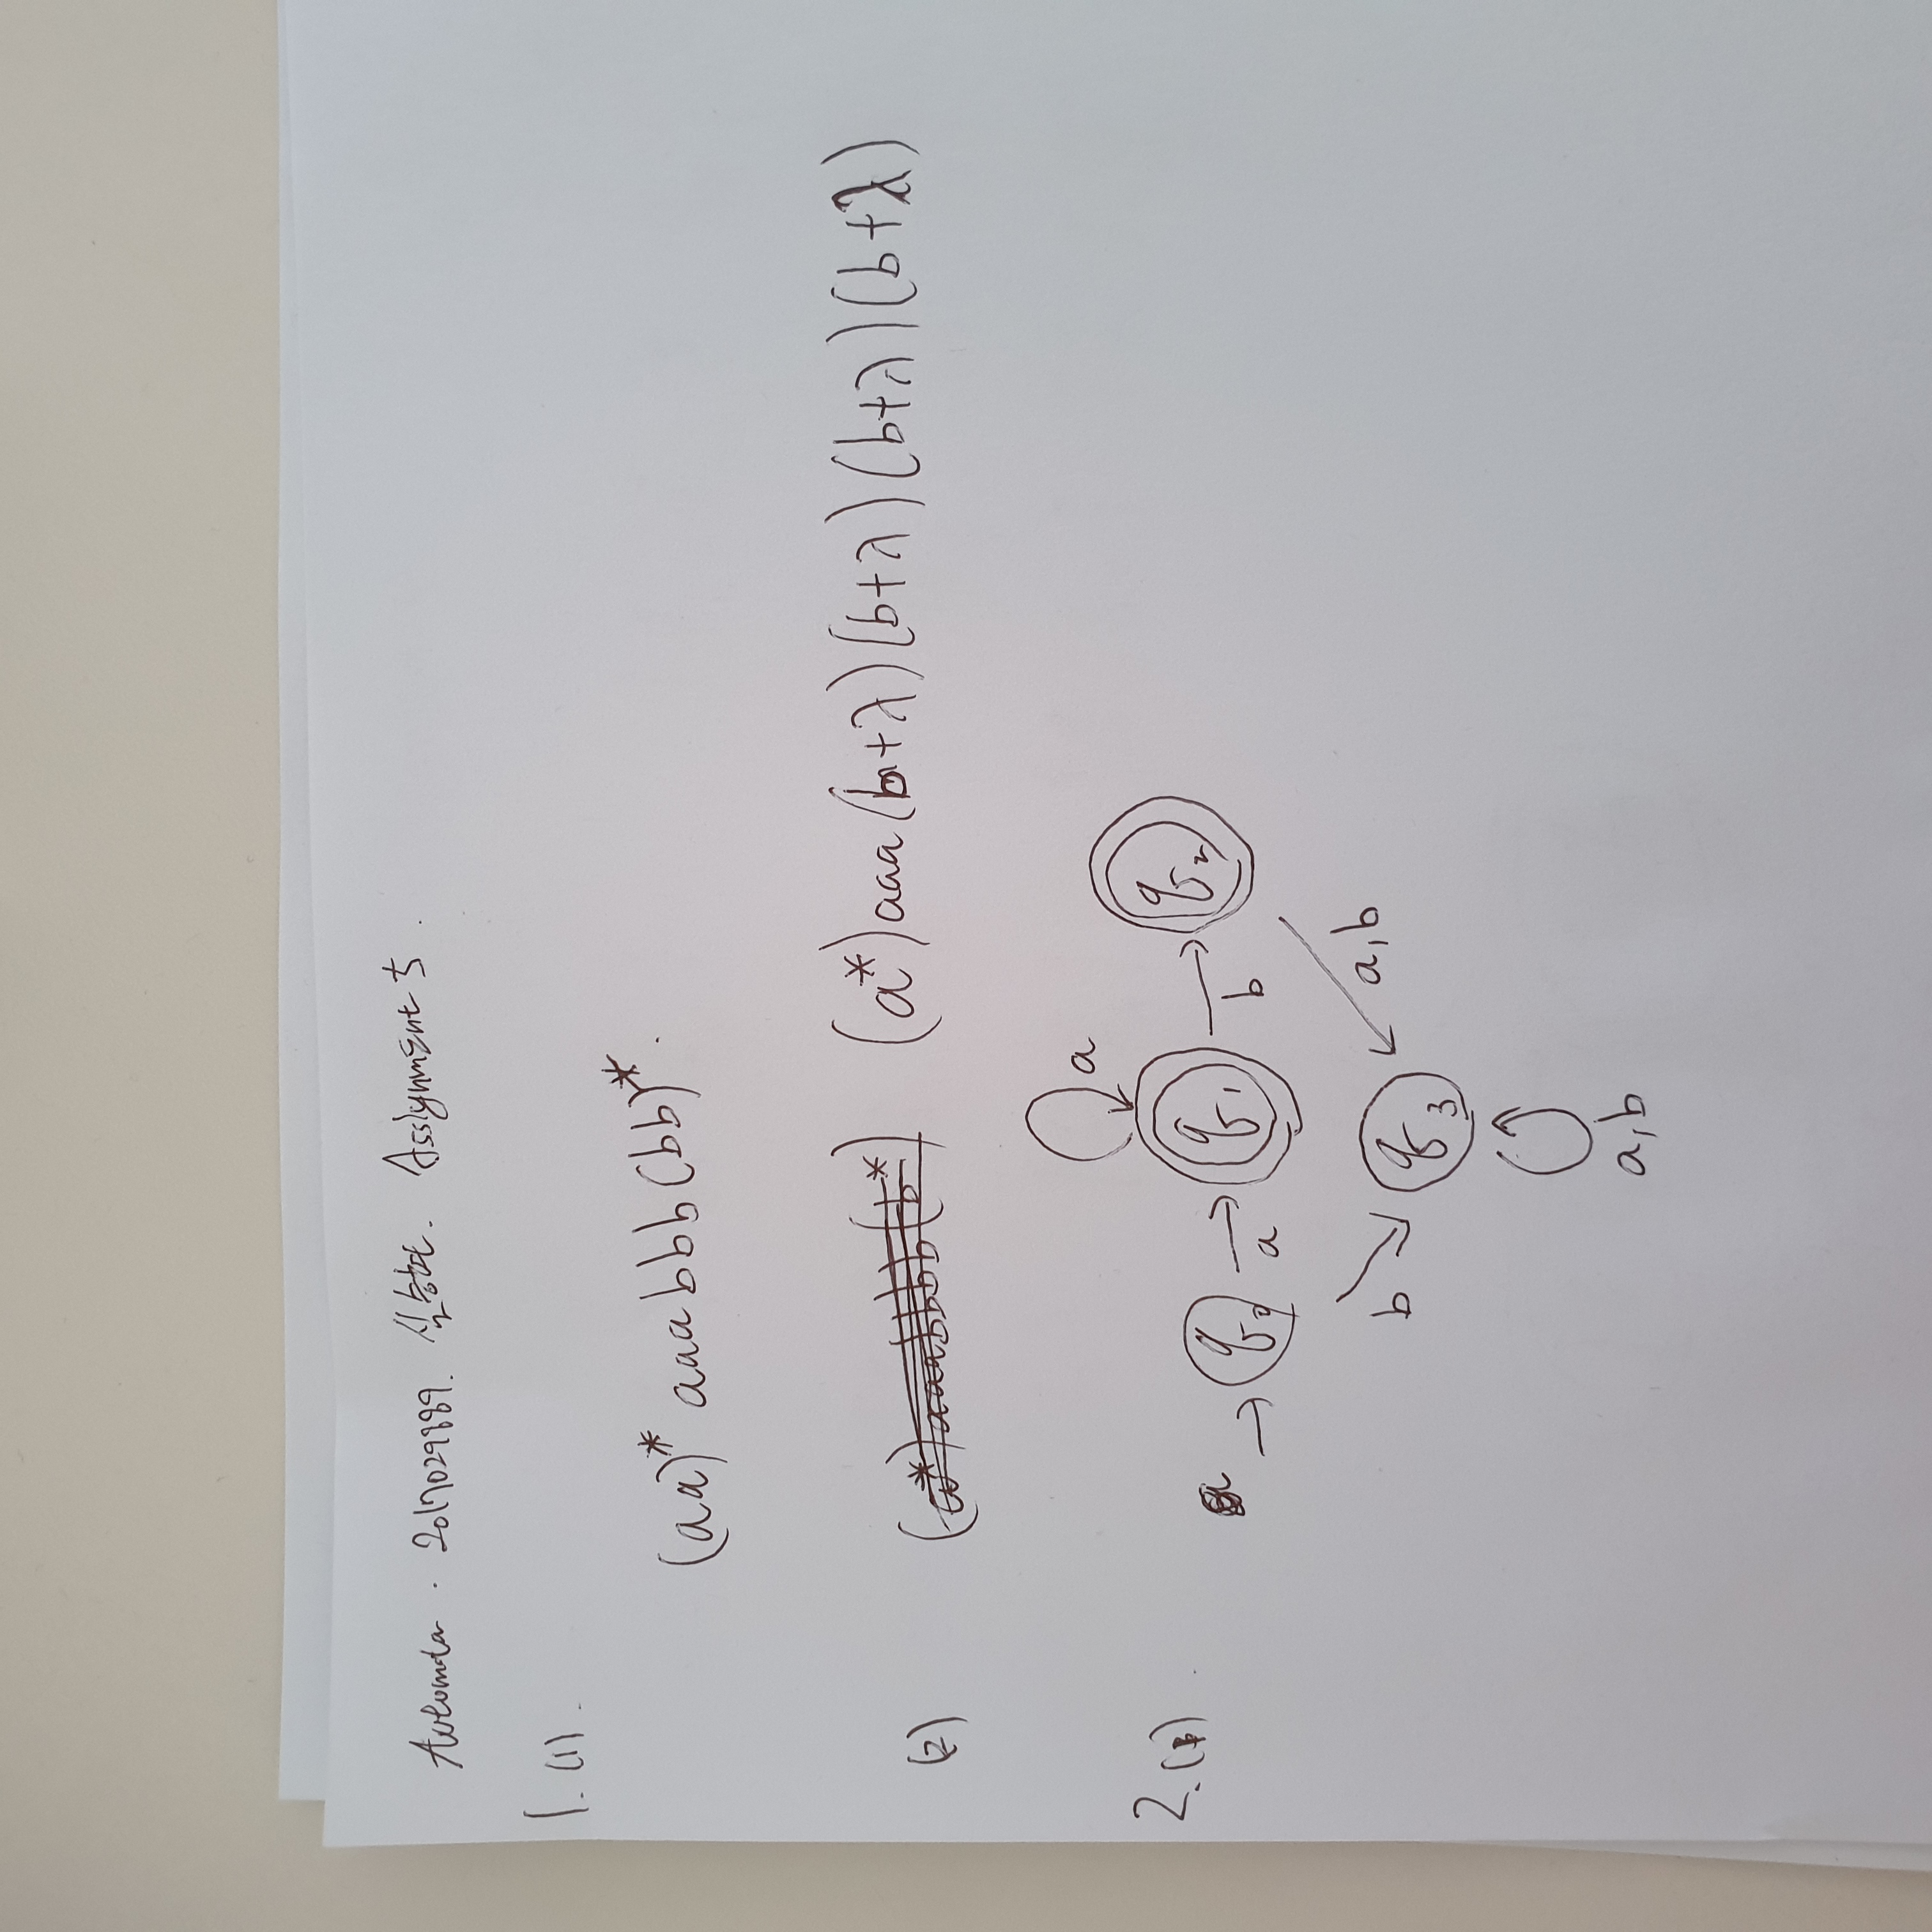 Automata . 2017029889. 실승혁. Assignment 5 .
1. (1) .
(aa)* aaabbb(bb)* .
(2) (a*)aaa(b+λ)(b+λ)(b+λ)(b+λ)
2. (1) .
a
q0 a q1 b q2
b a,b
q3
a,b